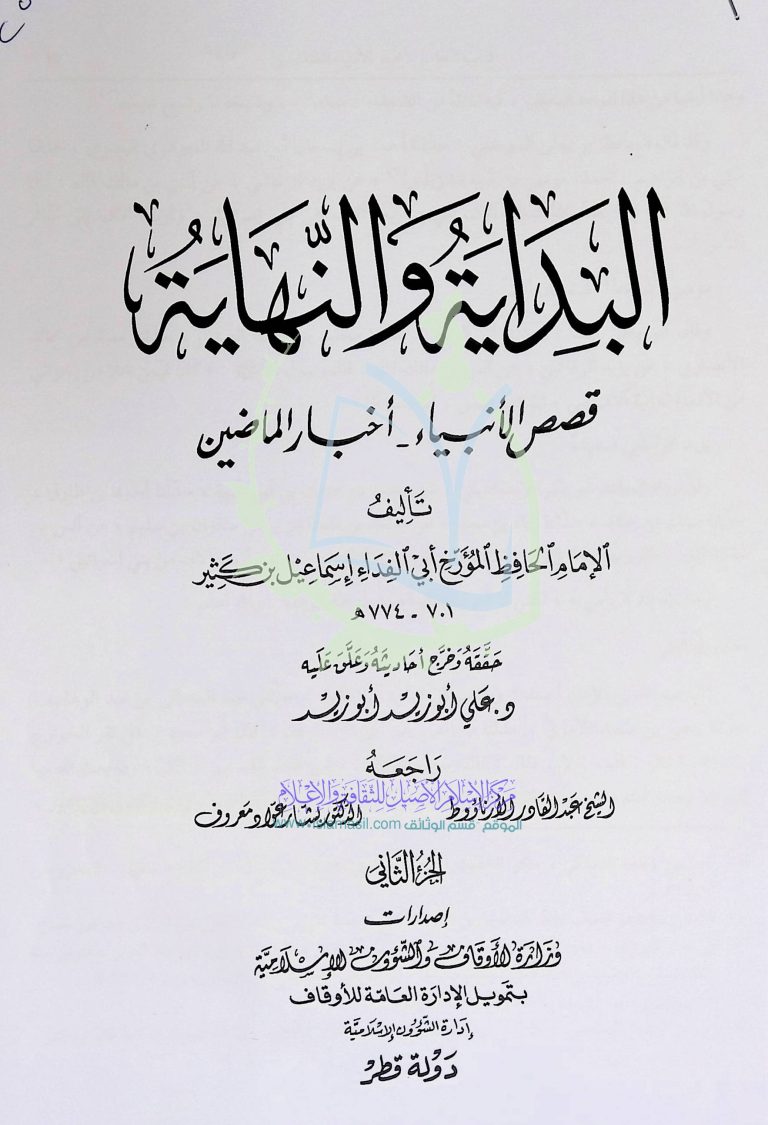 البِدَايَةُ وَالنِّهَايَةُ
قصص الأنبياء - أخبار الماضين
تَأليفُ
الإمَامِ الحَافِظِ المُؤَرِّخِ أبي الفِدَاءِ إِسمَاعِيْل بن كَثِير
٧٠١ - ٧٧٤ هـ
حَقَّقَهُ وَخَرَّج أحَاديثَهُ وَعَلَّقَ عَلَيه
د. علي أبو زيد أبو زيد
رَاجَعَهُ
مركز الإسلام الأصيل للثقافة والإعلام
الشيخ عبد القادر الأرناؤوط الدكتور بشار عواد معروف
الموقع قسم الوثائق www.islamasil.com
الجُزءُ الثَّاني
إصدارات
وزَارَة الأوقاف والشّؤون الإسْلَاميَّة
بتمويل الإدارة العامّة للأوقاف
إدارة الشّؤون الإسْلاميَّة
دَولة قطر